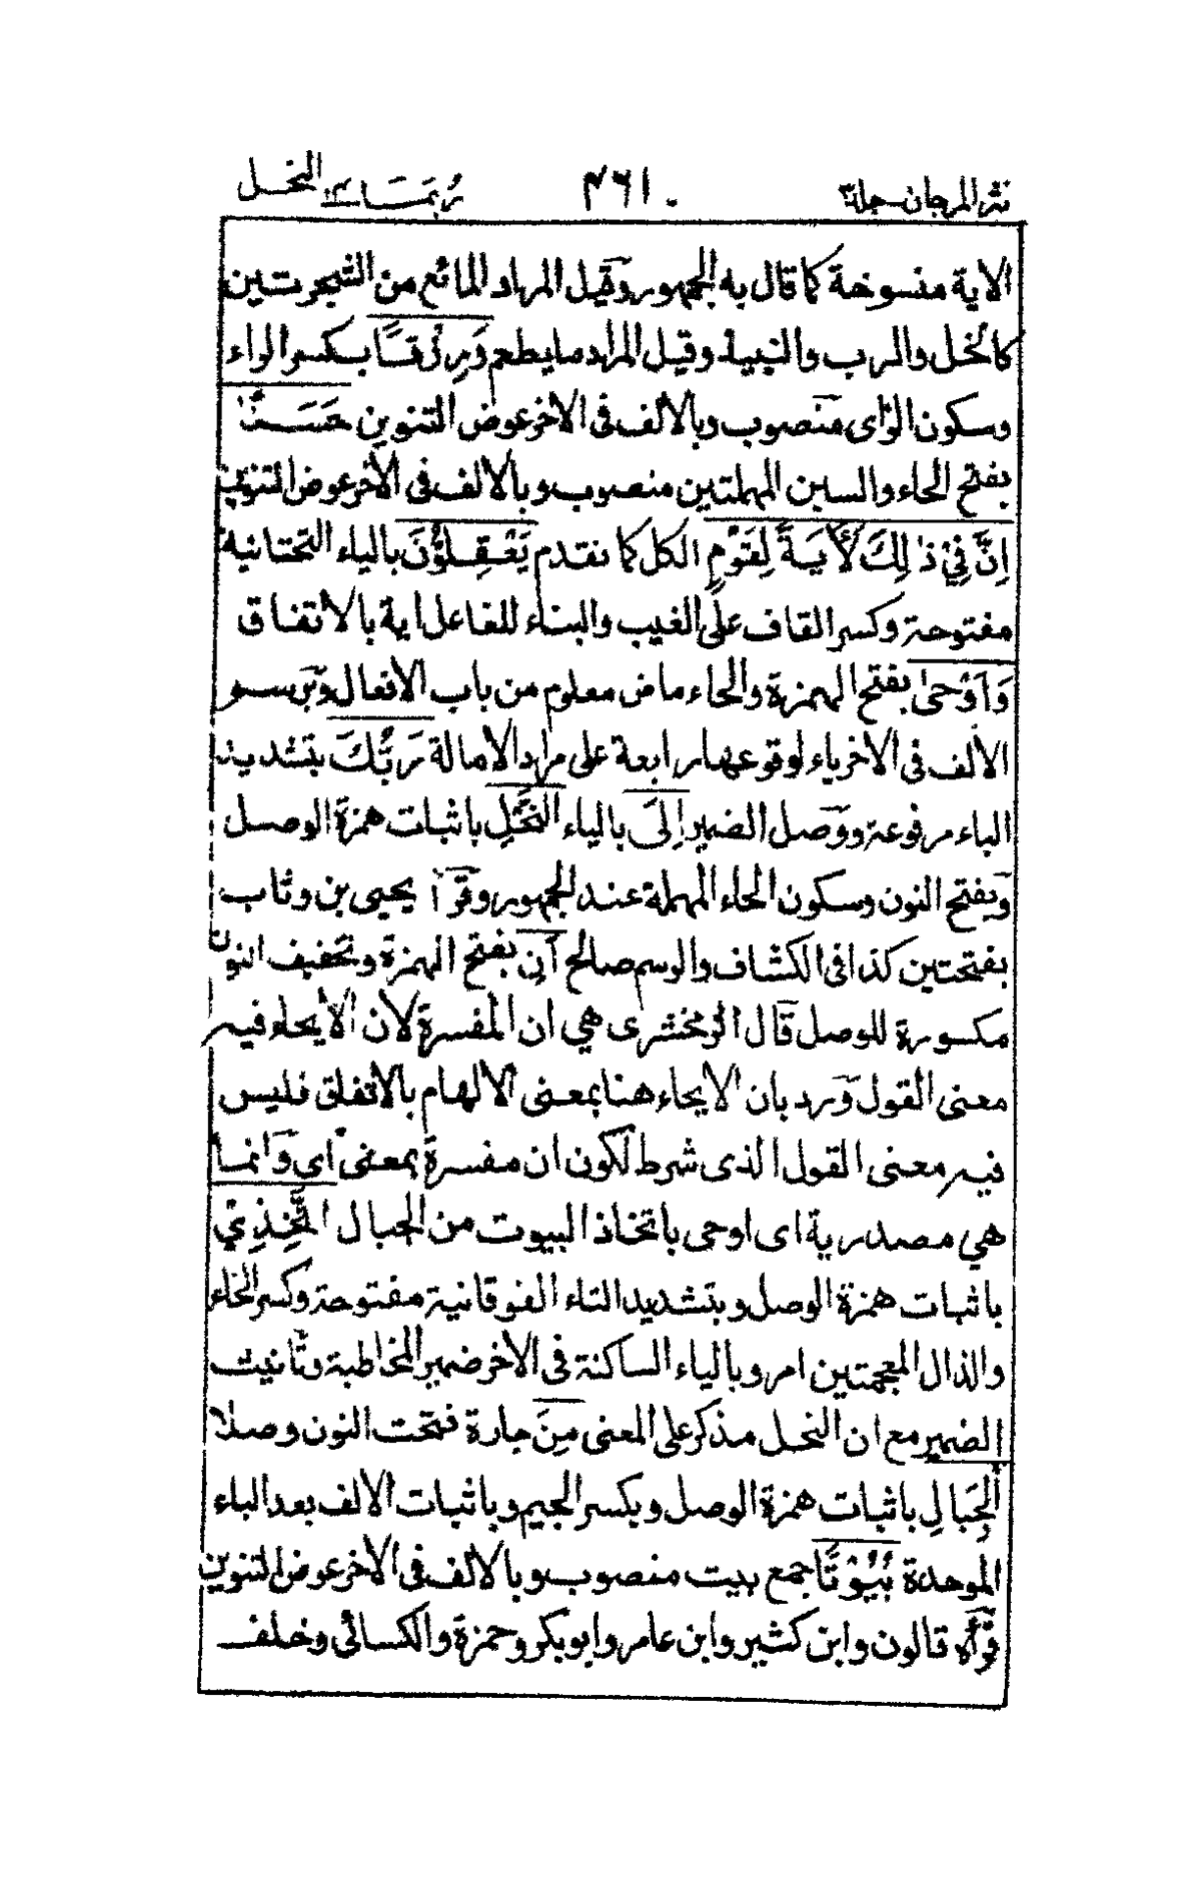 نثر المرجان جلد٣ ٤٦١ ربما ١٤ النحل
الاية منسوخة كما قال به الجمهور وقيل المراد المائع من الشجرتين
كالخل والرب والنبيذ وقيل المراد ما يطعم وَرِزْقًا بكسر الراء
وسكون الزاى منصوب وبالالف فى الاخر عوض التنوين حَسَنًا
بفتح الحاء والسين المهملتين منصوب وبالالف فى الاخر عوض التنوين
اِنَّ فِيْ ذٰلِكَ لَاٰيَةً لِقَوْمٍ الكل كما تقدم يَعْقِلُوْنَ بالياء التحتانية
مفتوحة وكسر القاف على الغيب والبناء للفاعل اية بالاتفاق
وَاَوْحٰى بفتح الهمزة والحاء ماض معلوم من باب الافعال وبرسم
الالف فى الاخر ياء لوقوعها رابعة على مراد الامالة رَبُّكَ بتشديد
الباء مرفوعة ووصل الضمير اِلَى بالياء النَّحْلِ باثبات همزة الوصل
وبفتح النون وسكون الحاء المهملة عند الجمهور وقرأ يحيى بن وثاب
بفتحتين كذا فى الكشاف والوسم صالح اَنِ بفتح الهمزة وتخفيف النون
مكسورة للوصل قال الزمخشرى هي ان المفسرة لان الايحاء فيه
معنى القول ورد بان الايحاء هنا بمعنى الالهام بالاتفاق فليس
فيه معنى القول الذى شرط لكون ان مفسرة بمعنى اي وانما
هي مصدرية اى اوحى باتخاذ البيوت من الجبال اتَّخِذِيْ
باثبات همزة الوصل وبتشديد التاء الفوقانية مفتوحة وكسر الخاء
والذال المعجمتين امر وبالياء الساكنة فى الاخر ضمير المخاطبة وتانيث
الضمير مع ان النحل مذكر على المعنى مِنَ جارة فتحت النون وصلا
الْجِبَالِ باثبات همزة الوصل وبكسر الجيم وباثبات الالف بعد الباء
الموحدة بُيُوْتًا جمع بيت منصوب وبالالف فى الاخر عوض التنوين
قرأه قالون وابن كثير وابن عامر وابو بكر وحمزة والكسائى وخلف